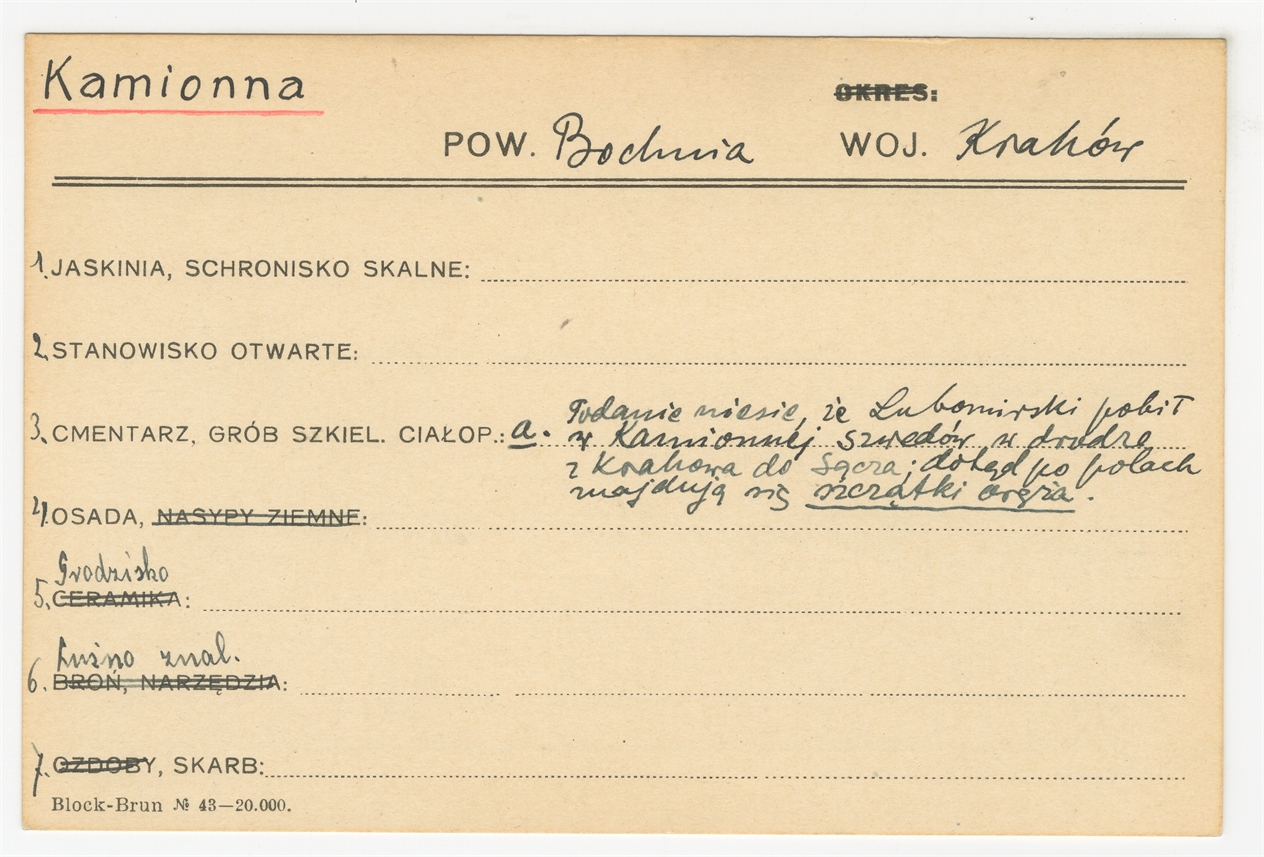 Kamionna
OKRES:
POW. Bochnia WOJ. Kraków
1. JASKINIA, SCHRONISKO SKALNE:
2. STANOWISKO OTWARTE:
Podanie niesie, że Lubomirski pobił
3. CMENTARZ, GRÓB SZKIEL. CIAŁOP.: a. w Kamionnej szwedów w drodze
z Krakowa do Sącza; dotąd po polach
znajdują się szczątki oręża.
4. OSADA, NASYPY ZIEMNE:
Grodzisko
5. CERAMIKA:
Luźno znal.
6. BROŃ, NARZĘDZIA:
7. OZDOBY, SKARB:
Block-Brun № 43—20.000.